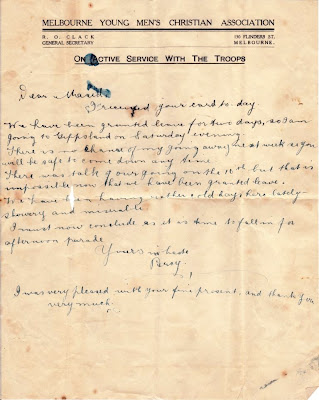 MELBOURNE YOUNG MEN'S CHRISTIAN ASSOCIATION
R. O. CLACK
GENERAL SECRETARY
FLINDERS ST.,
MELBOURNE.
ON ACTIVE SERVICE WITH THE TROOPS
Dear
I received your card to-day.
We have been granted leave for two days, so I am
going to Gippsland on Saturday evening
There is no chance of my going away next week so you
will be safe to come down any time.
There was talk of our going on the 10th but that is
impossible now that we have been granted leave.
We have been having rather cold days here lately
showery and miserable
I must now conclude as it is time to fall in for
afternoon parade
Yours in haste
Percy.
I was very pleased with your fine present, and thank you
very much.